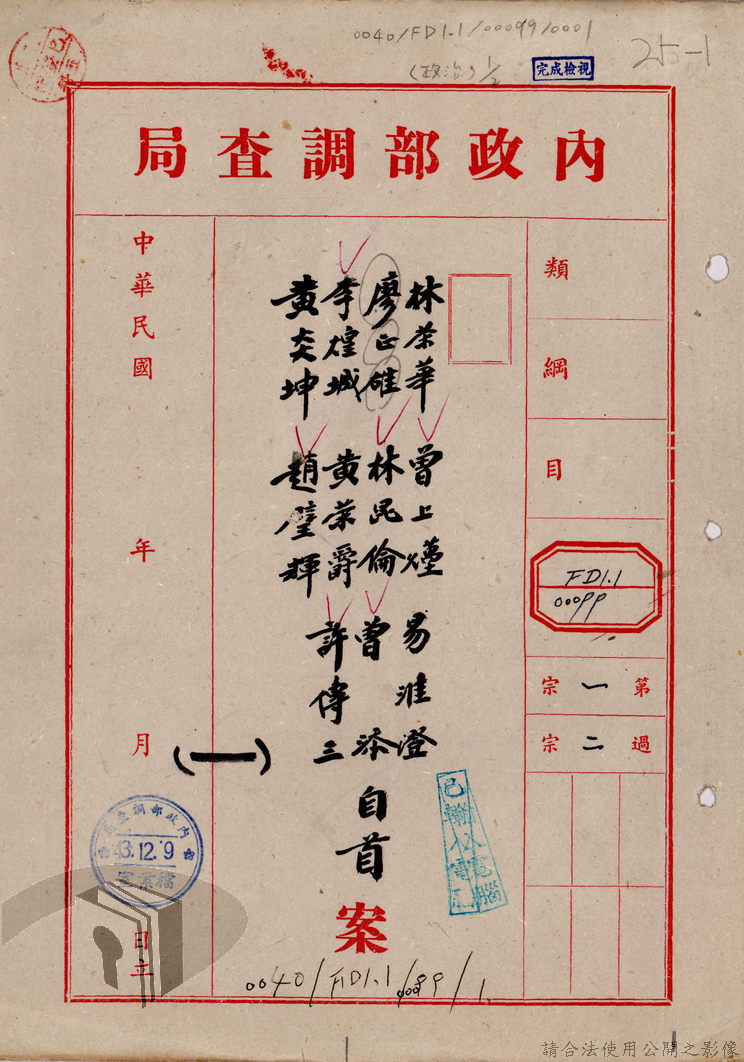 0040/FD1.1/00099/0001
(政治) 1/2
完成檢視
25-1
內政部調查局
類
綱
目
FD1.1
00099
第一宗
過二宗
林荣華 曾上爐 易淮澄
廖正雄 林昆倫 曾添
李煌城 黄荣爵 許傳三
黃炎坤 趙璧輝
自首
案
(一)
中華民國
年
月
日立
內政部調查局
43.12.9
檔案室
已輸入電腦
0040/FD1.1/00099/1
請合法使用公開之影像